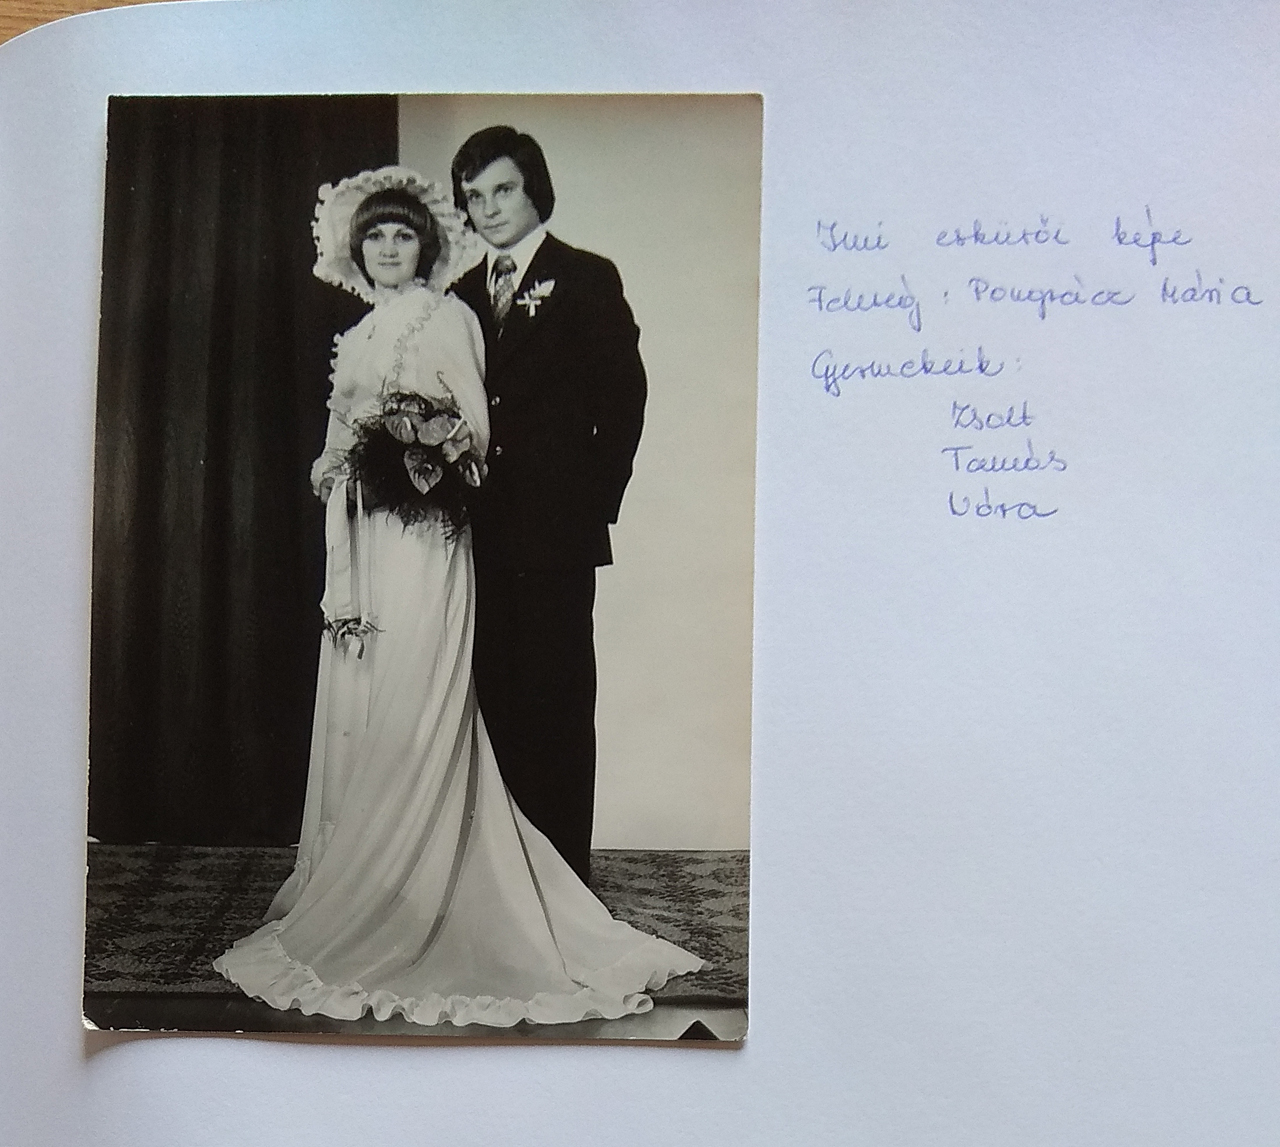 Imi esküvői képe
Feleség: Pongrácz Mária
Gyermekeik:
Zsolt
Tamás
Nóra